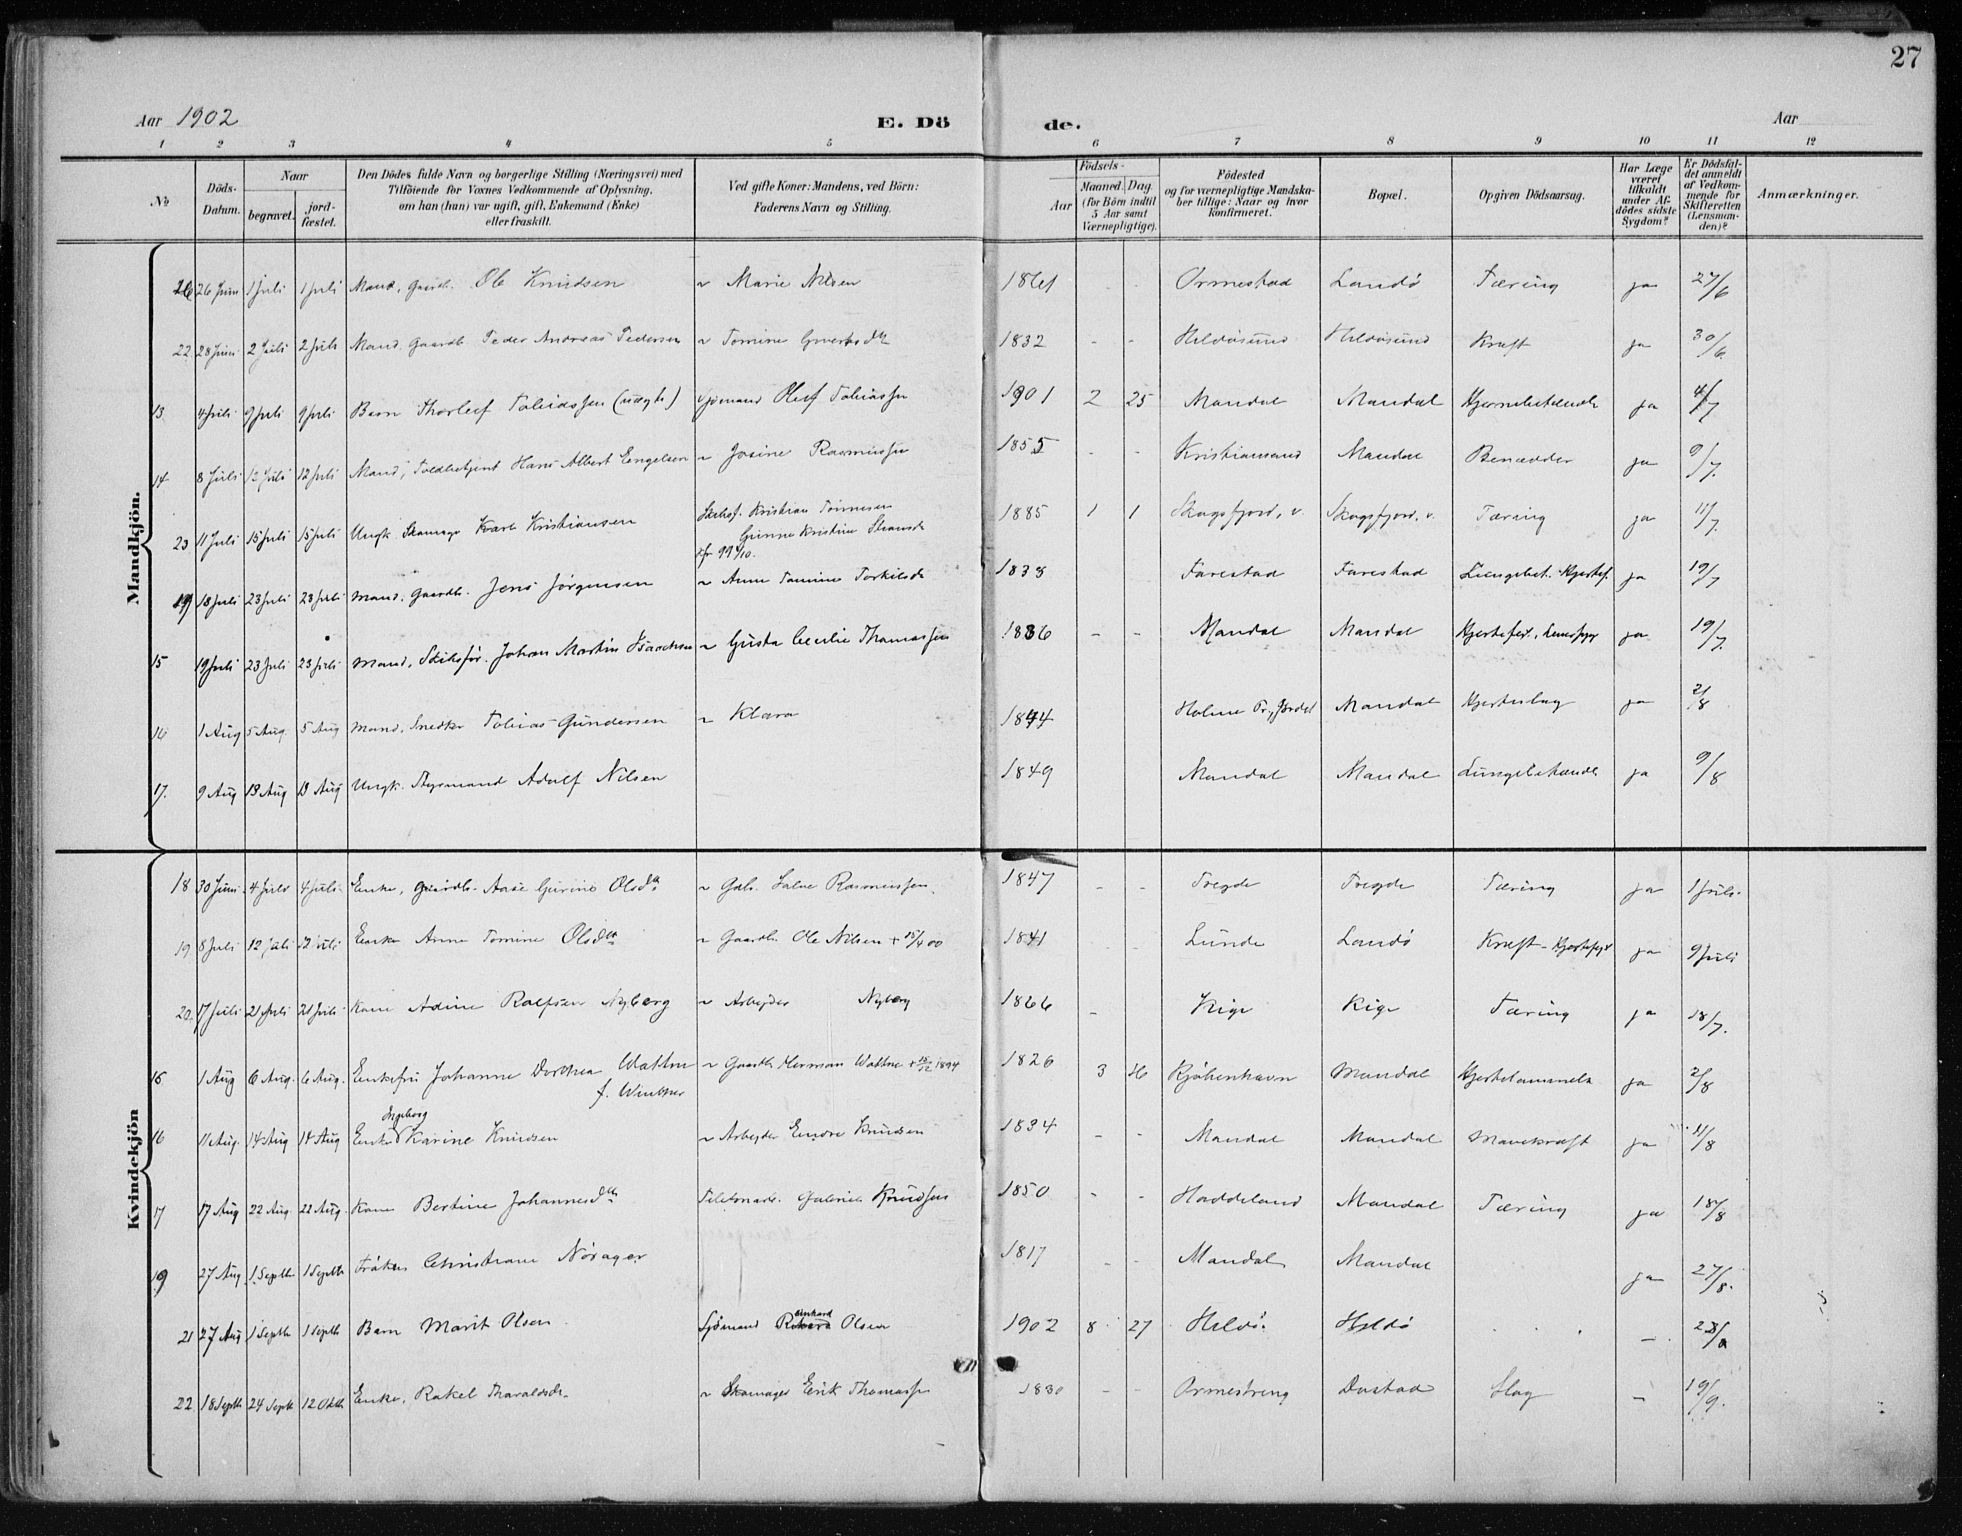 27
Aar 1902 E. Dö de. Aar
1 2 3 4 5 6 7 8 9 10 11 12
No
Döds-Datum.
Naar
begravet.
jord-fæstet.
Den Dödes fulde Navn og borgerlige Stilling (Næringsvei) med
Tilföiende for Voxnes Vedkommende af Oplysning,
om han (hun) var ugift, gift, Enkemand (Enke)
eller fraskilt.
Ved gifte Koner: Mandens, ved Börn:
Faderens Navn og Stilling.
Födsels-
Aar
Maaned. Dag.
(for Börn indtil
5 Aar samt
Værnepligtige).
Födested
og for værnepligtige Mandska-
ber tillige: Naar og hvor
konfirmeret.
Bopæl.
Opgiven Dödsaarsag.
Har Læge
været
tilkaldt
under Af-
dödes sidste
Sygdom?
Er Dödsfal-
det anmeldt
af Vedkom-
mende for
Skifteretten
(Lensman-
den)?
Anmærkninger.
Mandkjön.
26 Juni 1 Juli 1 Juli Mand, Gaardb. Ole Knudsen ~ Marie Nilsen 1861 - - Ormestad Landö Tæring ja 27/6
22 28 Juni 2 Juli 2 Juli Mand. Gaardb. Peder Andreas Pedersen ~ Tomine 1832 - - Hildösund Hildösund Kræft ja 30/6
13 4 Juli 9 Juli 9 Juli Barn Thorleif Tobiassen (uægte) Sjömand Oluf Tobiassen 1901 2 25 Mandal Mandal ja 4/7
14 8 Juli 12 Juli 12 Juli Mand, Toldbetjent Hans Albert Engelsen ~ Josine Rasmussen 1855 - - Kristiansand Mandal Benædder ja 9/7
23 11 Juli 15 Juli 15 Juli Ungk. Skomager Karl Kristiansen Kristian Tönnesen Gunne Kristine 1885 1 1 Skogsfjord, v. Skogsfjord, v. Tæring ja 11/7
19 18 Juli 23 Juli 23 Juli Mand. Gaardb. Jens Jörgensen ~ Anne Tomine Torkilsdr 1838 Farestad Farestad ja 19/7
15 19 Juli 23 Juli 23 Juli Mand, Skibsför. Johan Martin Isaachsen ~ Gusta Cecilie Thomassen 1836 - - Mandal Mandal ja 19/7
1 Aug 5 Aug 5 Aug Mand, Snedker Tobias Gundersen ~ Klara 1844 Holme Mandal Hjerteslag ja 2/8
17. 9 Aug 13 Aug 13 Aug Ungk. Styrmand Adolf Nilsen 1849 Mandal Mandal Lungebetændelse ja 9/8
Kvindekjön
18 30 Juni 4 Juli 4 Juli Enke, Gaardb. Aase Gurine Olsdtr ~ Gdb. Salve Rasmussen 1847 - - Tregde Tregde Tæring ja 1 Juli
19 8 Juli 12 Juli 12 Juli Enke Anne Tomine Olsdtr ~ Gaardb. Ole Nilsen + 15/4 00 1841 Lunde Landö Kræft - ja 9 Juli
20 17 Juli 21 Juli 21 Juli Kone Adine Rolfsen Nyberg ~ Arbejder Nyberg 1866 - Kige Kige Tæring ja 18/7.
15 1 Aug 6 Aug. 6 Aug. Enkefru Johanne Dorthea Wattne f. Winther ~ Gaardb Herman Wattne 1894 1826 3 Kjöbenhavn Mandal ja 2/8
16 11 Aug. 14 Aug 14 Aug Enke Ingeborg Karine Knudsen ~ Arbejder Endre Knudsen 1834 - - Mandal Mandal Mavekræft ja 11/8
17 17 Aug 22 Aug. 22 Aug. Kone Bertine Johannesdtr Gabriel Knudsen 1850 - - Haddeland Mandal Tæring ja 18/8
19 27 Aug 1 Septb 1 Septb Fröken Christiane Nörager 1817 - - Mandal Mandal ja 27/8.
21 27 Aug 1 Septb 1 Septb Barn Marit Olsen Sjömand Olsen 1902 8 27 Hildö Hildö - 28/8
22 18 Septb 24 Septb 12 Oktb Enke, Rakel Tharaldsdr. ~ Skomager Erik Thomassen 1830 - - Ormestreng Dastad Slag - 19/9.